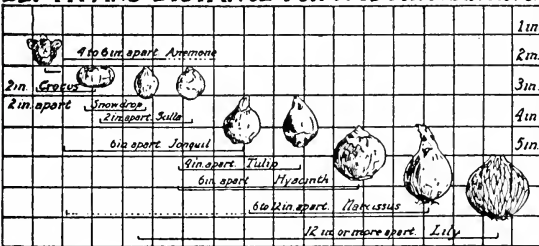 1in
4 to 6 in. apart Anemone
2in.
2in. Crocus
3in.
2 in. apart Snowdrop
2 in. apart Scilla
4in
6 in apart Jonquil
5in.
4 in. apart. Tulip
6 in. apart Hyacinth
6 to 12 in. apart. Narcissus
12 in. or more apart. Lily